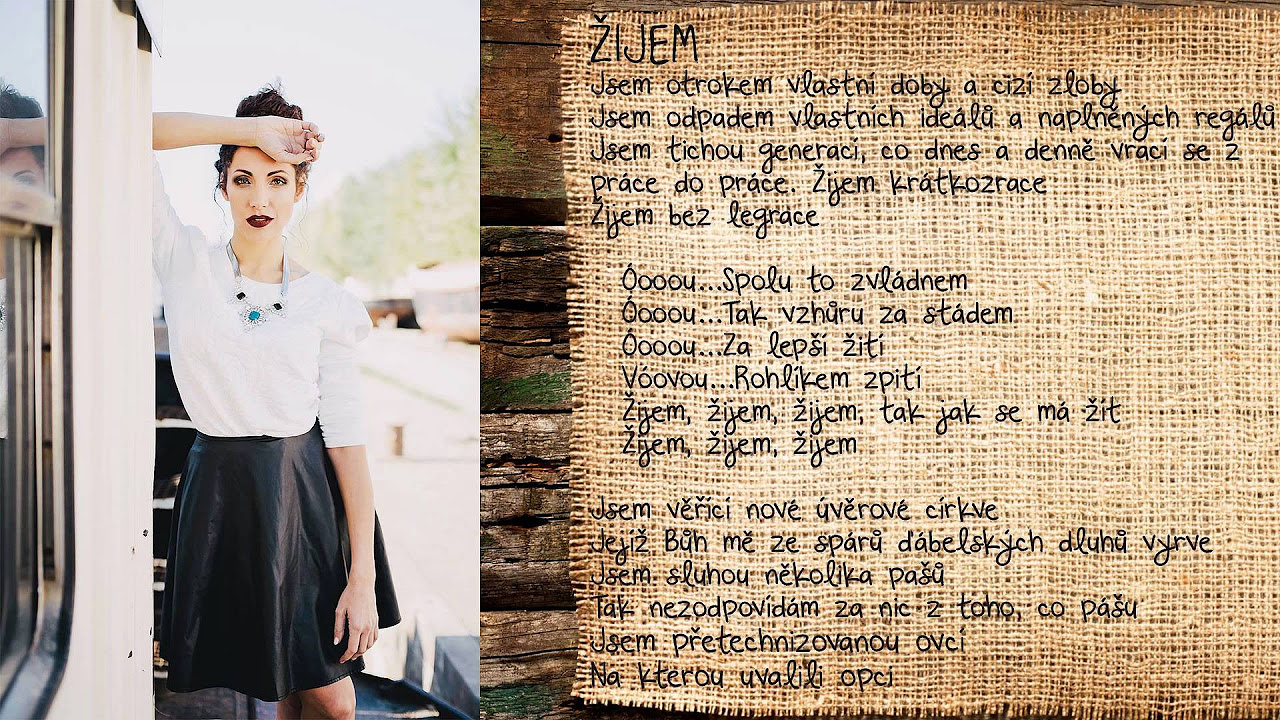 ŽIJEM
Jsem otrokem vlastní doby a cizí zloby
Jsem odpadem vlastních ideálů a naplněných regálů
Jsem tichou generací, co dnes a denně vrací se z
práce do práce. Žijem krátkozrace
Žijem bez legrace
Óooou...Spolu to zvládnem
Óooou...Tak vzhůru za stádem
Óooou...Za lepší žití
Vóovou...Rohlíkem zpití
Žijem, žijem, žijem, tak jak se má žít
Žijem, žijem, žijem
Jsem věřící nové úvěrové církve
Jejíž Bůh mě ze spárů ďábelských dluhů vyrve
Jsem sluhou několika pašů
Tak nezodpovídám za nic z toho, co pášu
Jsem přetechnizovanou ovcí
Na kterou uvalili opci